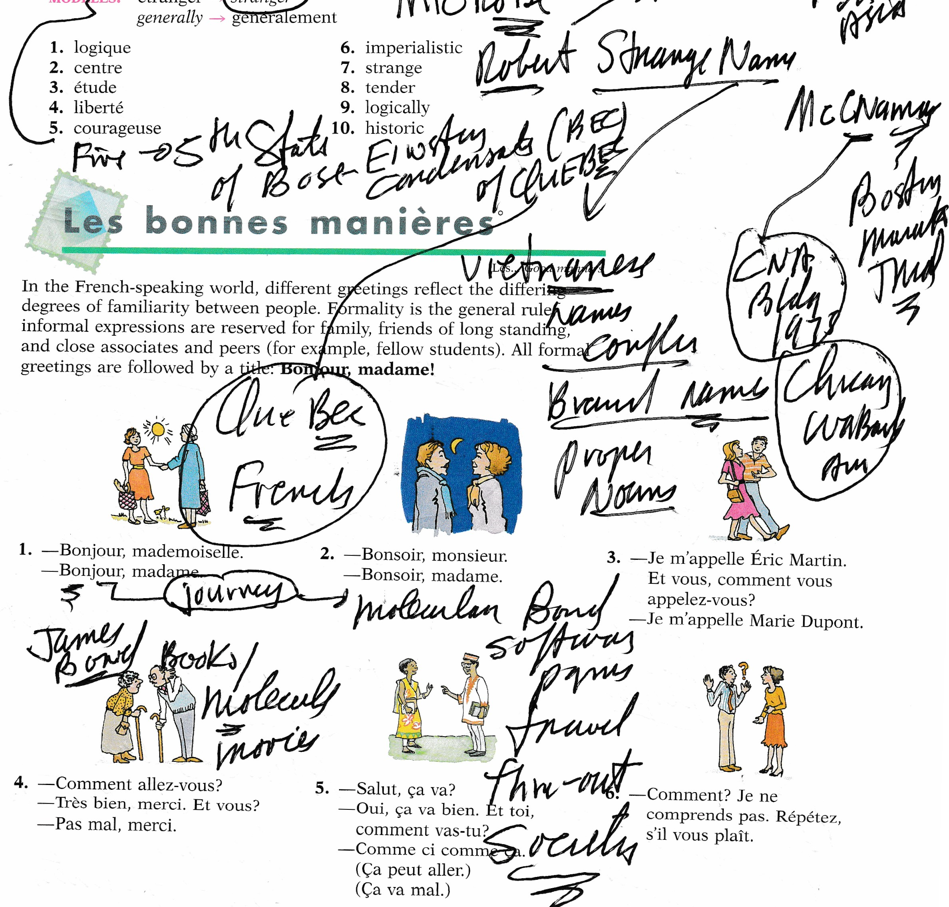 generally → généralement
1. logique
2. centre
3. étude
4. liberté
5. courageuse
6. imperialistic
7. strange
8. tender
9. logically
10. historic
Robert Strange Name
Asia
Five → 5th State
of Bose-Einstein
Condensate (BEC)
of QUEBEC
Les bonnes manières
In the French-speaking world, different greetings reflect the differing
degrees of familiarity between people. Formality is the general rule;
informal expressions are reserved for family, friends of long standing,
and close associates and peers (for example, fellow students). All formal
greetings are followed by a title: Bonjour, madame!
Vietnamese
Names
Conflict
Brand names
Proper
Nouns
CNA
Bldg
1973
Boston
QueBec
French
1. —Bonjour, mademoiselle.
—Bonjour, madame.
2. —Bonsoir, monsieur.
—Bonsoir, madame.
3. —Je m'appelle Éric Martin.
Et vous, comment vous
appelez-vous?
—Je m'appelle Marie Dupont.
journey
molecular Bond
software
James
Bond Books/
Molecule
movies
travel
thru-out
Society
4. —Comment allez-vous?
—Très bien, merci. Et vous?
—Pas mal, merci.
5. —Salut, ça va?
—Oui, ça va bien. Et toi,
comment vas-tu?
—Comme ci comme ça.
(Ça peut aller.)
(Ça va mal.)
6. —Comment? Je ne
comprends pas. Répétez,
s'il vous plaît.